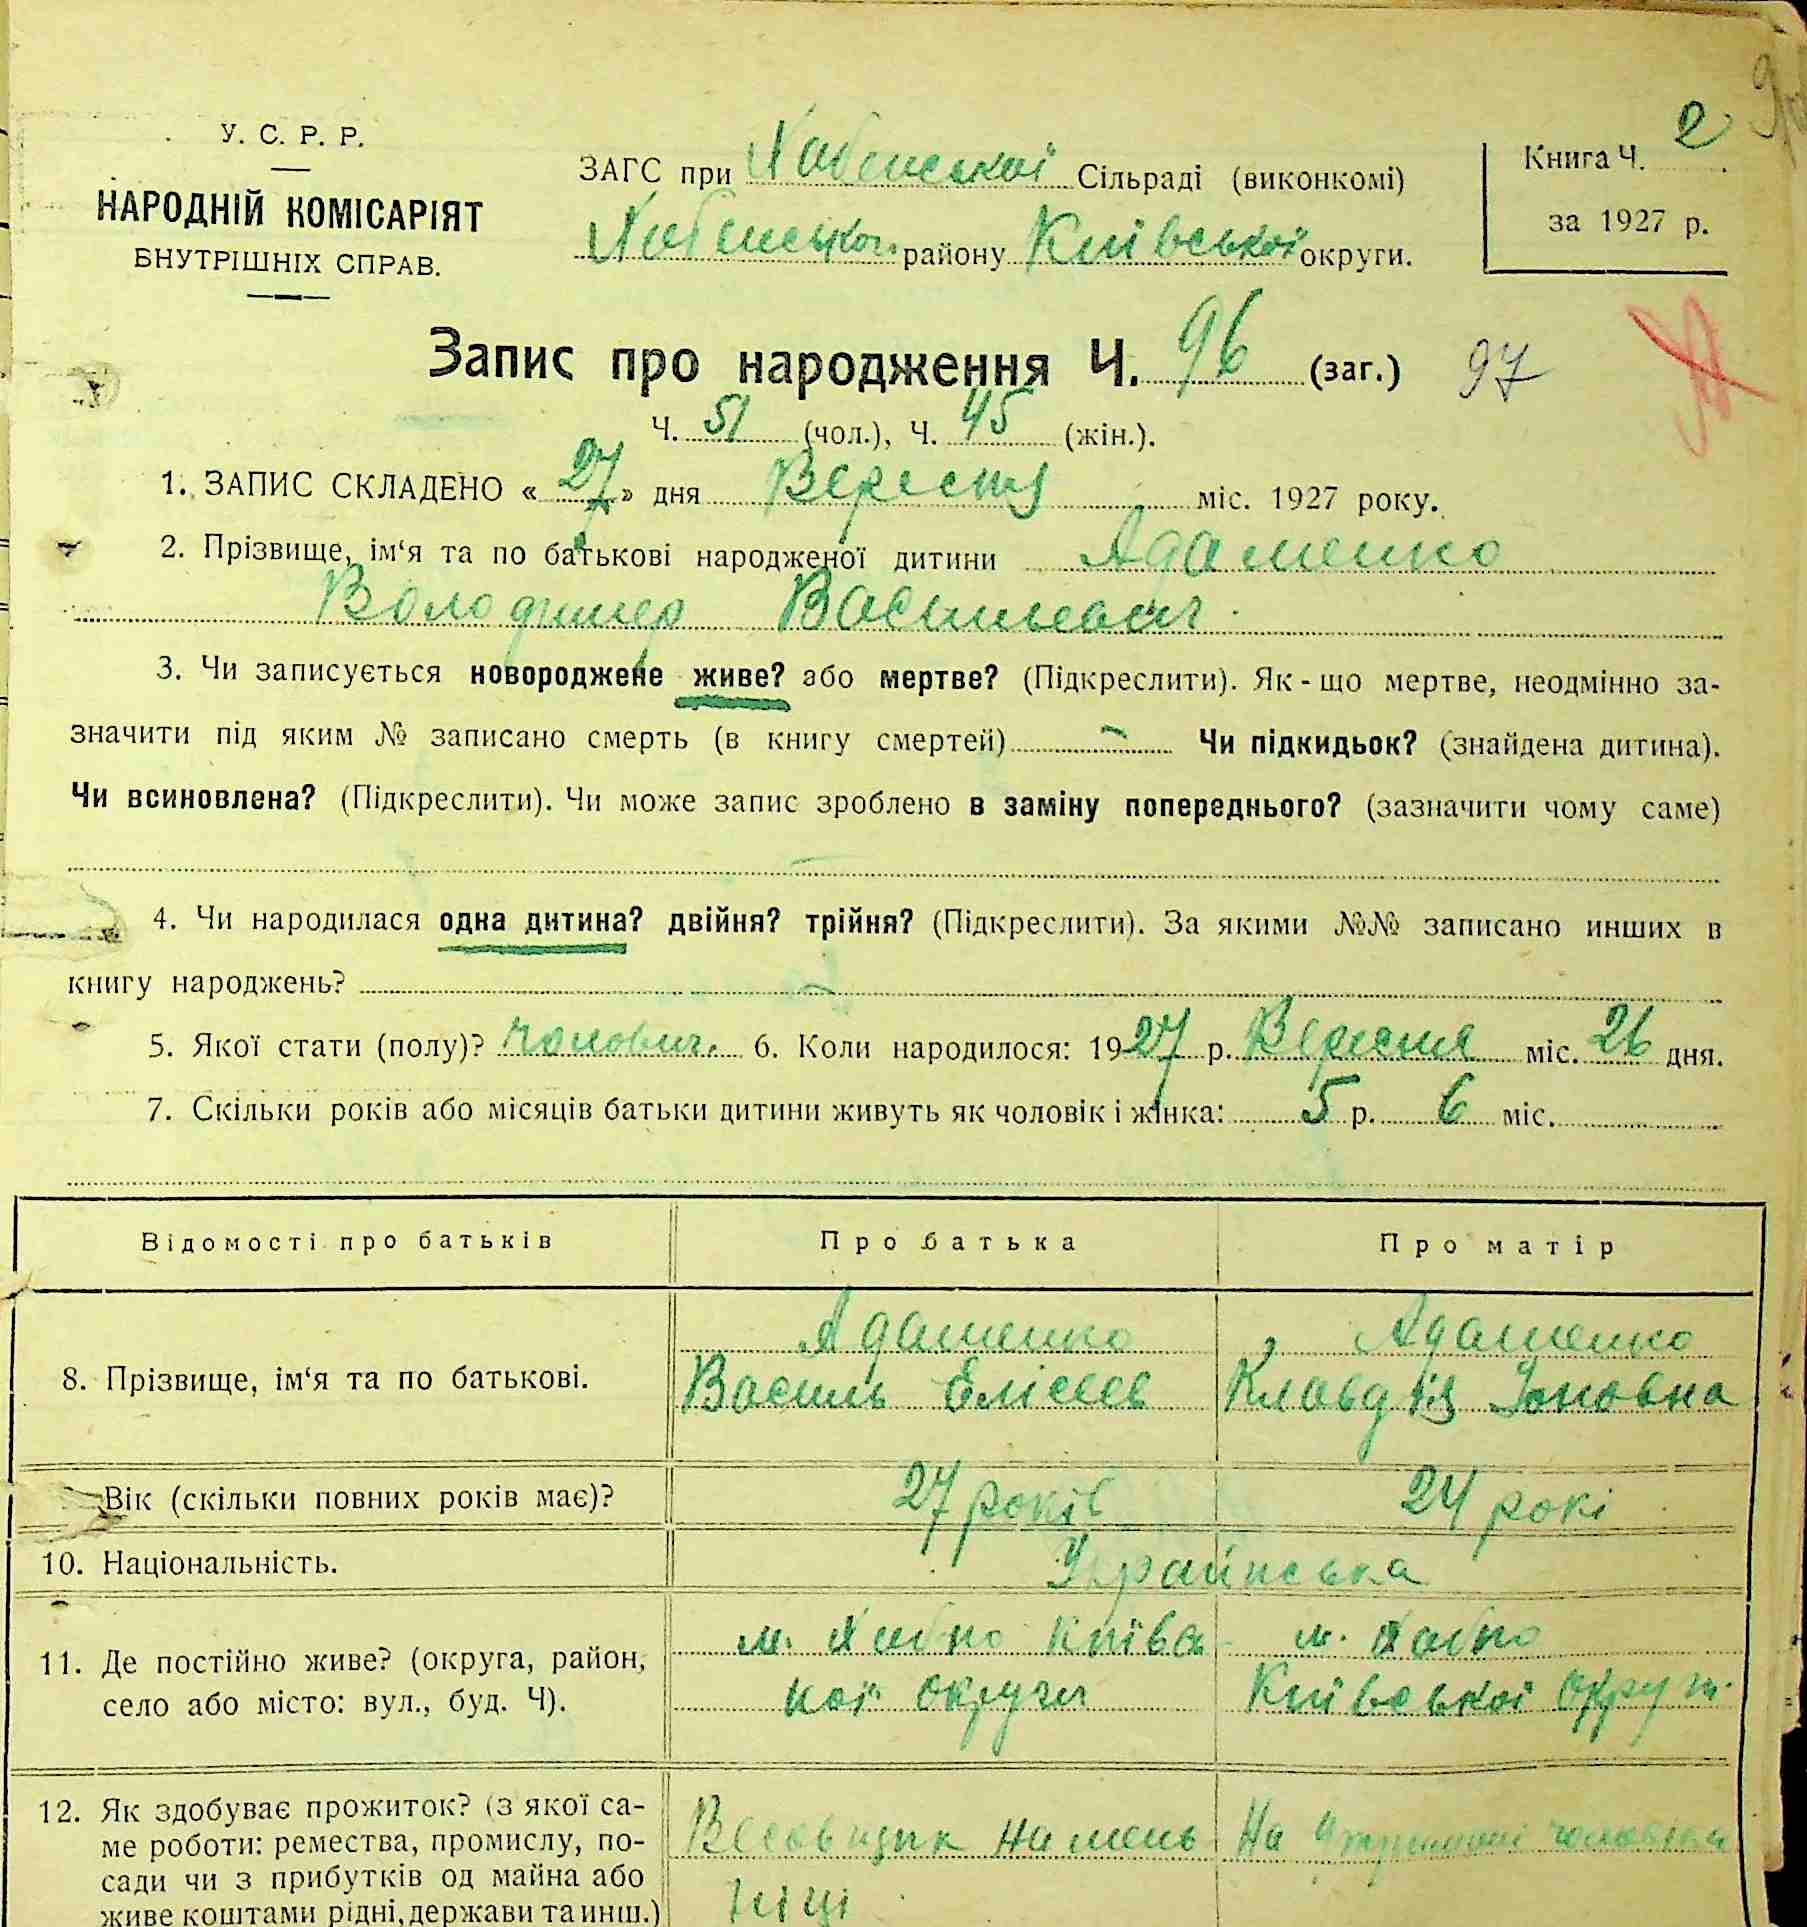 У. С. Р. Р.
НАРОДНІЙ КОМІСАРІЯТ
ВНУТРІШНІХ СПРАВ.
ЗАГС при Хабенської Сільраді (виконкомі)
Хабенськог. району Київської округи.
Книга Ч. 2
за 1927 р.
Запис про народження Ч. 96 (заг.) 97
Ч. 51 (чол.), Ч. 45 (жін.).
1. ЗАПИС СКЛАДЕНО « 27 » дня Вересня міс. 1927 року.
2. Прізвище, ім‘я та по батькові народженої дитини Адаменко
Володимер Васильевич
3. Чи записується новороджене живе? або мертве? (Підкреслити). Як-що мертве, неодмінно за-
значити під яким № записано смерть (в книгу смертей) Чи підкидьок? (знайдена дитина).
Чи всиновлена? (Підкреслити). Чи може запис зроблено в заміну попереднього? (зазначити чому саме)
4. Чи народилася одна дитина? двійня? трійня? (Підкреслити). За якими №№ записано инших в
книгу народжень?
5. Якої стати (полу)? чолович. 6. Коли народилося: 1927 р. Вересня міс. 26 дня.
7. Скільки років або місяців батьки дитини живуть як чоловік і жінка: 5 р. 6 міс.
Відомості про батьків Про батька Про матір
Адаменко Адаменко
8. Прізвище, ім‘я та по батькові. Василь Елісеев Клавдія Іоновна
Вік (скільки повних років має)? 27 років 24 рокі
10. Національність. Українська
м. Хабно Київсь м. Хабно
11. Де постійно живе? (округа, район,
село або місто: вул., буд. Ч). кої округи Київської округи
12. Як здобуває прожиток? (з якої са-
ме роботи: ремества, промислу, по- Весовщик на мель На утриманні чоловіка
сади чи з прибутків од майна або
живе коштами рідні, держави та инш.) ніці